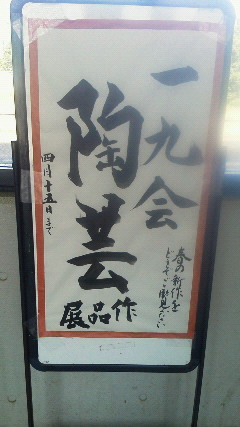 一九会
陶芸
作品展
春の新作を
どうぞご ください
四月十五日まで